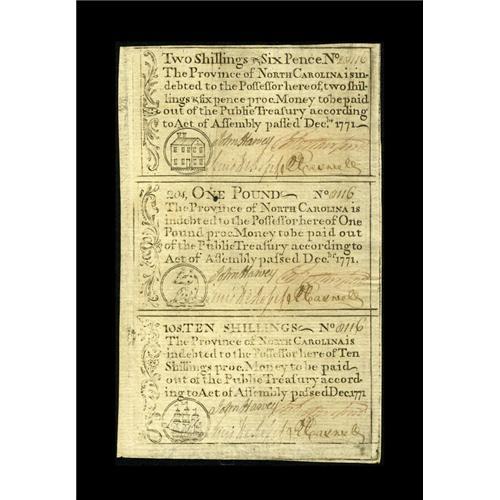 Two Shillings & Six Pence. No 8116
The Province of North Carolina is in-
debted to the Possessor hereof, two shil-
lings & six pence proc. Money to be paid
out of the Public Treasury according
to Act of Assembly passed Decr. 1771.
John Harvey
Rd Caswell
20s, One Pound No 8116
The Province of North Carolina is
indebted to the Possessor here of One
Pound proc. Money to be paid out
of the Public Treasury according to
Act of Assembly passed Decr. 1771.
John Harvey
Rd Caswell
10s. Ten Shillings No 8116
The Province of North Carolina is
indebted to the Possessor here of Ten
Shillings proc. Money to be paid
out of the Public Treasury accord-
ing to Act of Assembly passed Dec. 1771
John Harvey
Rd Caswell